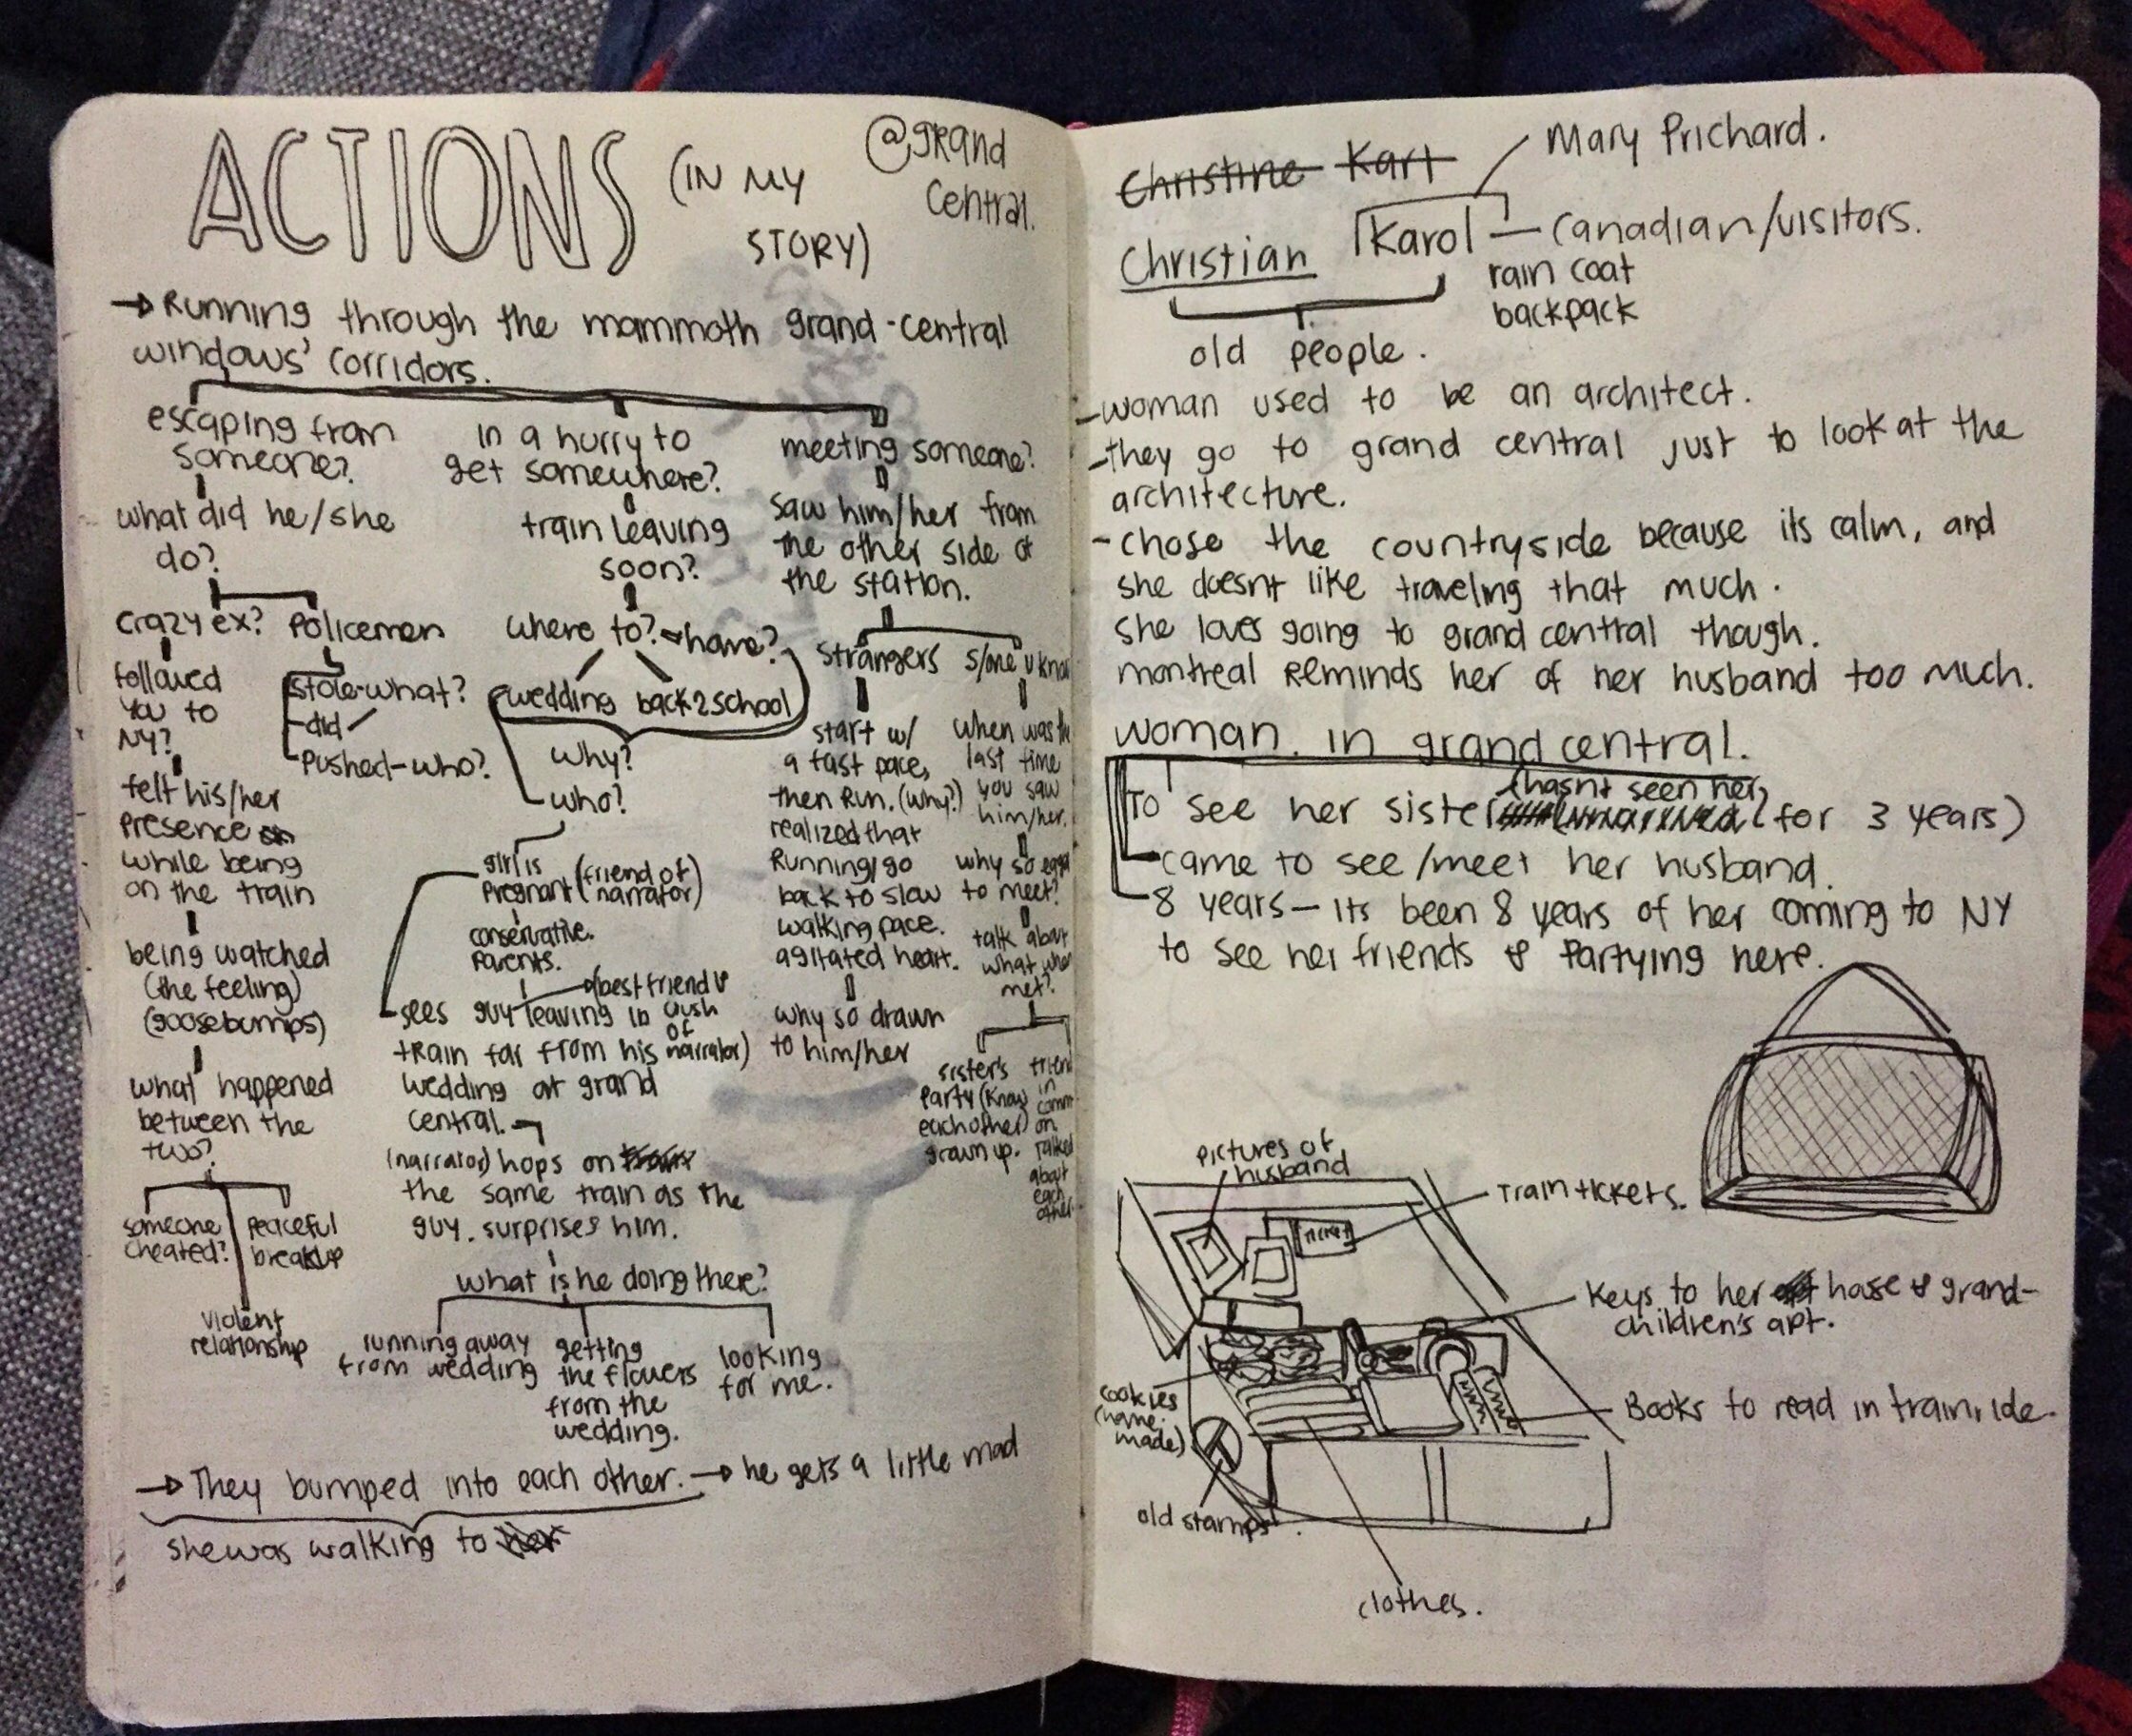 ACTIONS (IN MY
STORY)
@grand
Central.
→ Running through the mammoth grand-central
windows' corridors.
escaping from
someone?
what did he/she
do?
crazy ex?
followed
you to
NY?
felt his/her
presence
while being
on the train
being watched
(the feeling)
(goosebumps)
what happened
between the
two?
someone
cheated?
violent
relationship
peaceful
breakup
Policemen
stole-what?
-did
-Pushed-who?
in a hurry to
get somewhere?
train leaving
soon?
where to?
home?
wedding
back2school
why?
who?
girl is
pregnant (friend of
narrator)
conservative
parents.
sees guy leaving in
(best friend &
crush
of
narrator)
train far from his
wedding at grand
central.
(narrator) hops on
the same train as the
guy. surprises him.
what is he doing there?
running away
from wedding
getting
the flowers
from the
wedding.
looking
for me.
meeting someone?
saw him/her from
the other side of
the station.
strangers
start w/
a fast pace,
then Run. (why?)
realized that
Running/go
back to slow
walking pace.
agitated heart.
why so drawn
to him/her
s/one u know
when was the
last time
you saw
him/her.
why so
to meet?
talk about
what when
met?
sister's
party (know
each other)
grown up.
friend
in
comm
on
talked
about
each
other
→ They bumped into each other. → he gets a little mad
she was walking to her
Christine Kart
Mary Prichard.
Christian Karol — Canadian/visitors.
rain coat
backpack
old people.
-woman used to be an architect.
-they go to grand central just to look at the
architecture.
-chose the countryside because its calm, and
she doesnt like traveling that much.
she loves going to grand central though.
montreal reminds her of her husband too much.
woman. in grand central.
To see her sister (hasnt seen her for 3 years)
came to see/meet her husband.
8 years— its been 8 years of her coming to NY
to see her friends & partying here.
pictures of
husband
Train tickets.
Ticket
Keys to her hose & grand-
children's apt.
cookies
(home
made)
Books to read in train ride.
old stamps.
clothes.